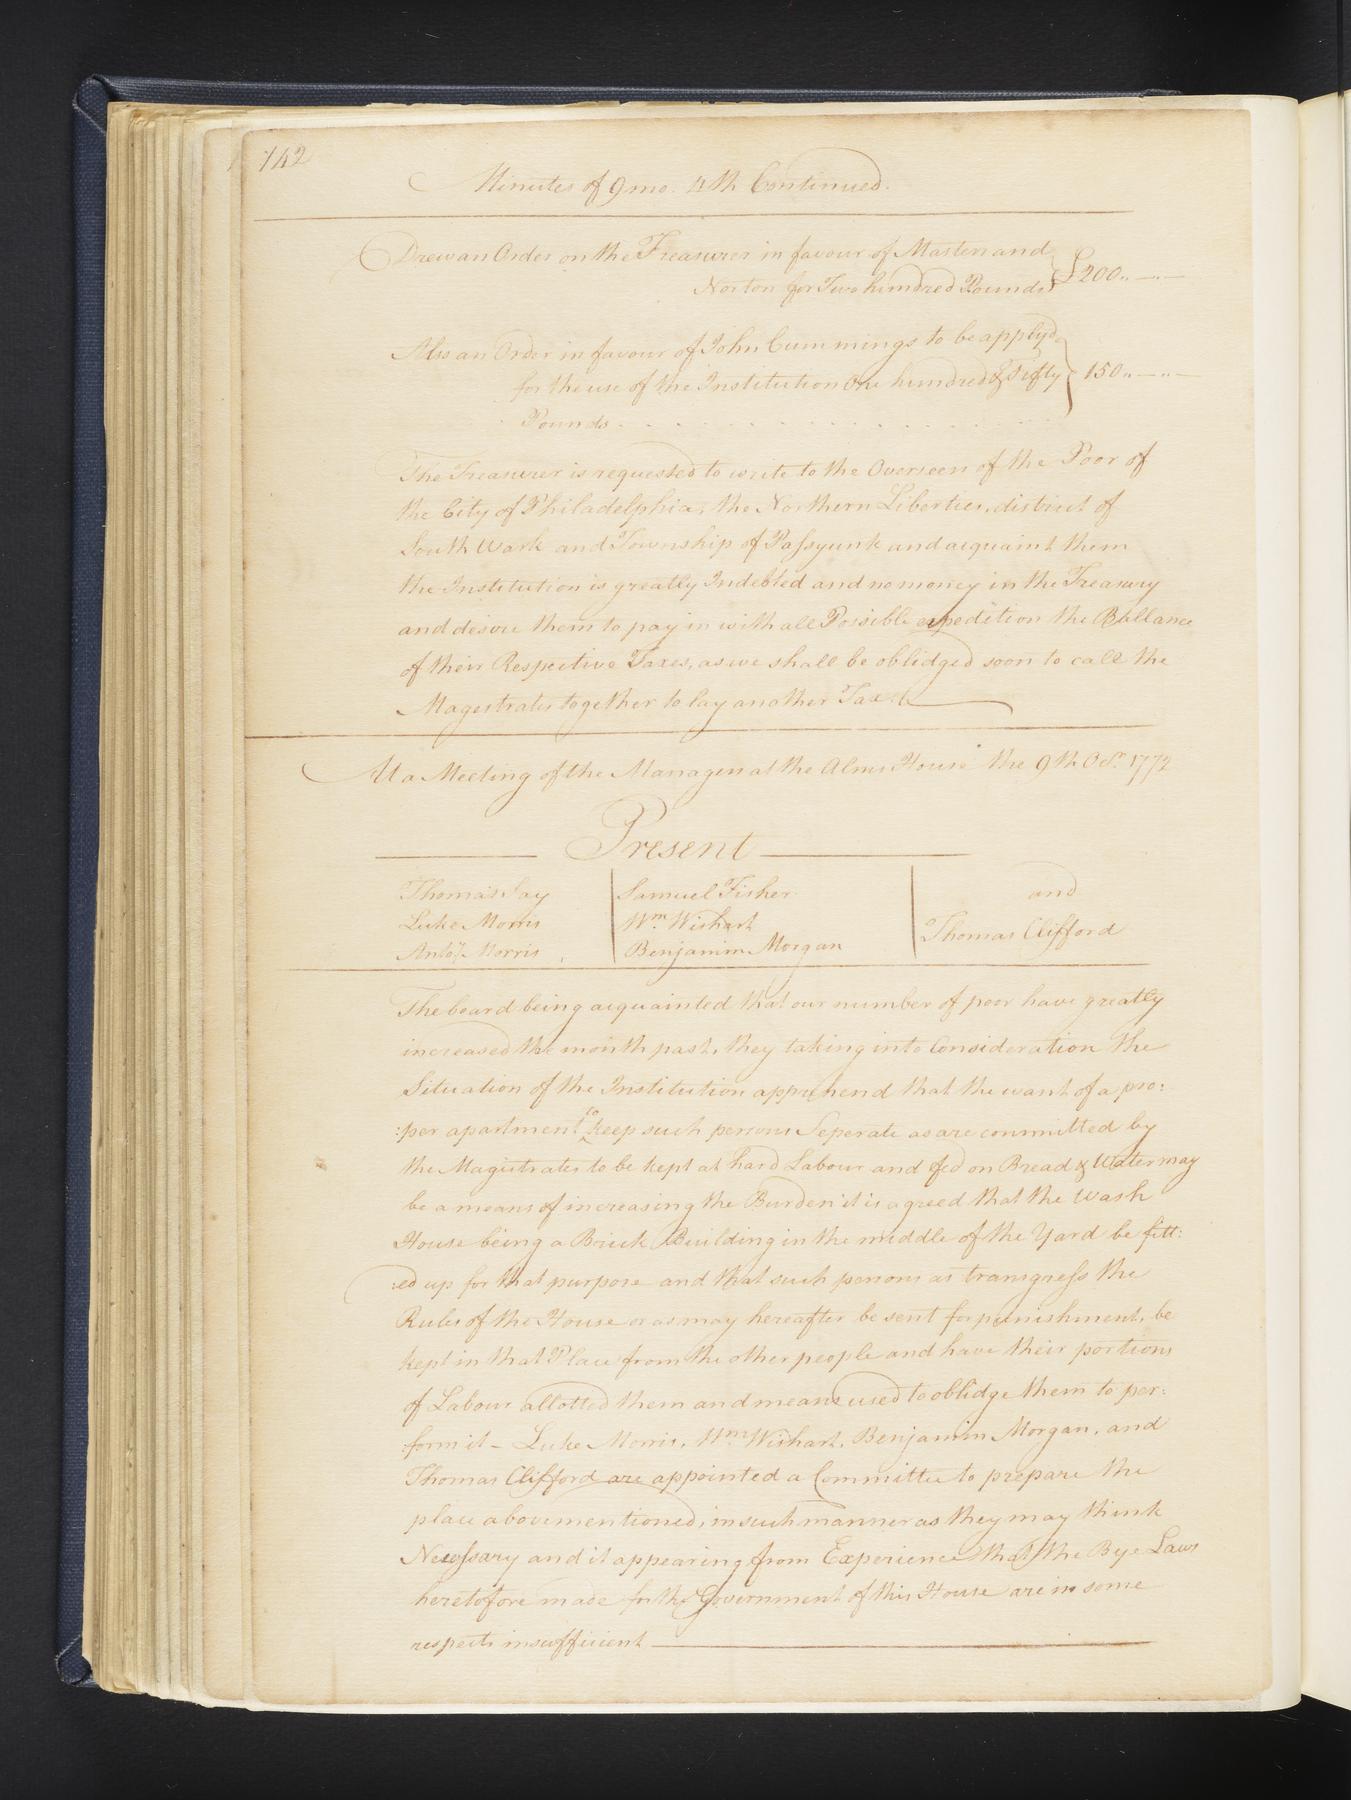 142
Minutes of 9 mo. 4th Continued.
Drew an Order on the Treasurer in favour of Masters and
Norton for Two hundred Pounds } £200..—..—
Also an Order in favour of John Cummings to be apply'd
for the use of the Institution One hundred & Fifty } 150..—..—
Pounds . . . . . . . . . . . . . . . .
The Treasurer is requested to write to the Overseers of the Poor of
the City of Philadelphia, the Northern Liberties, district of
South Wark and Township of Passyunk and acquaint them
the Institution is greatly Indebted and no money in the Treasury
and desire them to pay in with all Possible expedition the Ballance
of their Respective Taxes, as we shall be oblidged soon to call the
Magestrates together to lay another Tax.
At a Meeting of the Managers at the Alms House the 9th Octr. 1772
Present
Thomas Say | Samuel Fisher | and
Luke Morris | Wm. Wishart | Thomas Clifford
Antoy. Morris | Benjamin Morgan
The board being acquainted that our number of poor have greatly
increased the month past, they taking into Consideration the
Situation of the Institution apprehend that the want of a pro:
:per apartment to keep such persons Seperate as are committed by
the Magistrates to be kept at hard Labour and fed on Bread & Water may
be a means of increasing the Burden it is agreed that the Wash
House being a Brick Building in the middle of the Yard be fitt:
:ed up for that purpose and that such persons as transgress the
Rules of the House or as may hereafter be sent for punishment, be
kept in that Place from the other people and have their portions
of Labour allotted them and means used to oblidge them to per:
:form it – Luke Morris, Wm. Wishart, Benjamin Morgan, and
Thomas Clifford are appointed a Committee to prepare the
place abovementioned, in such manner as they may think
Necessary and it appearing from Experience that the Bye Laws
heretofore made for the Government of this House are in some
respects insufficient